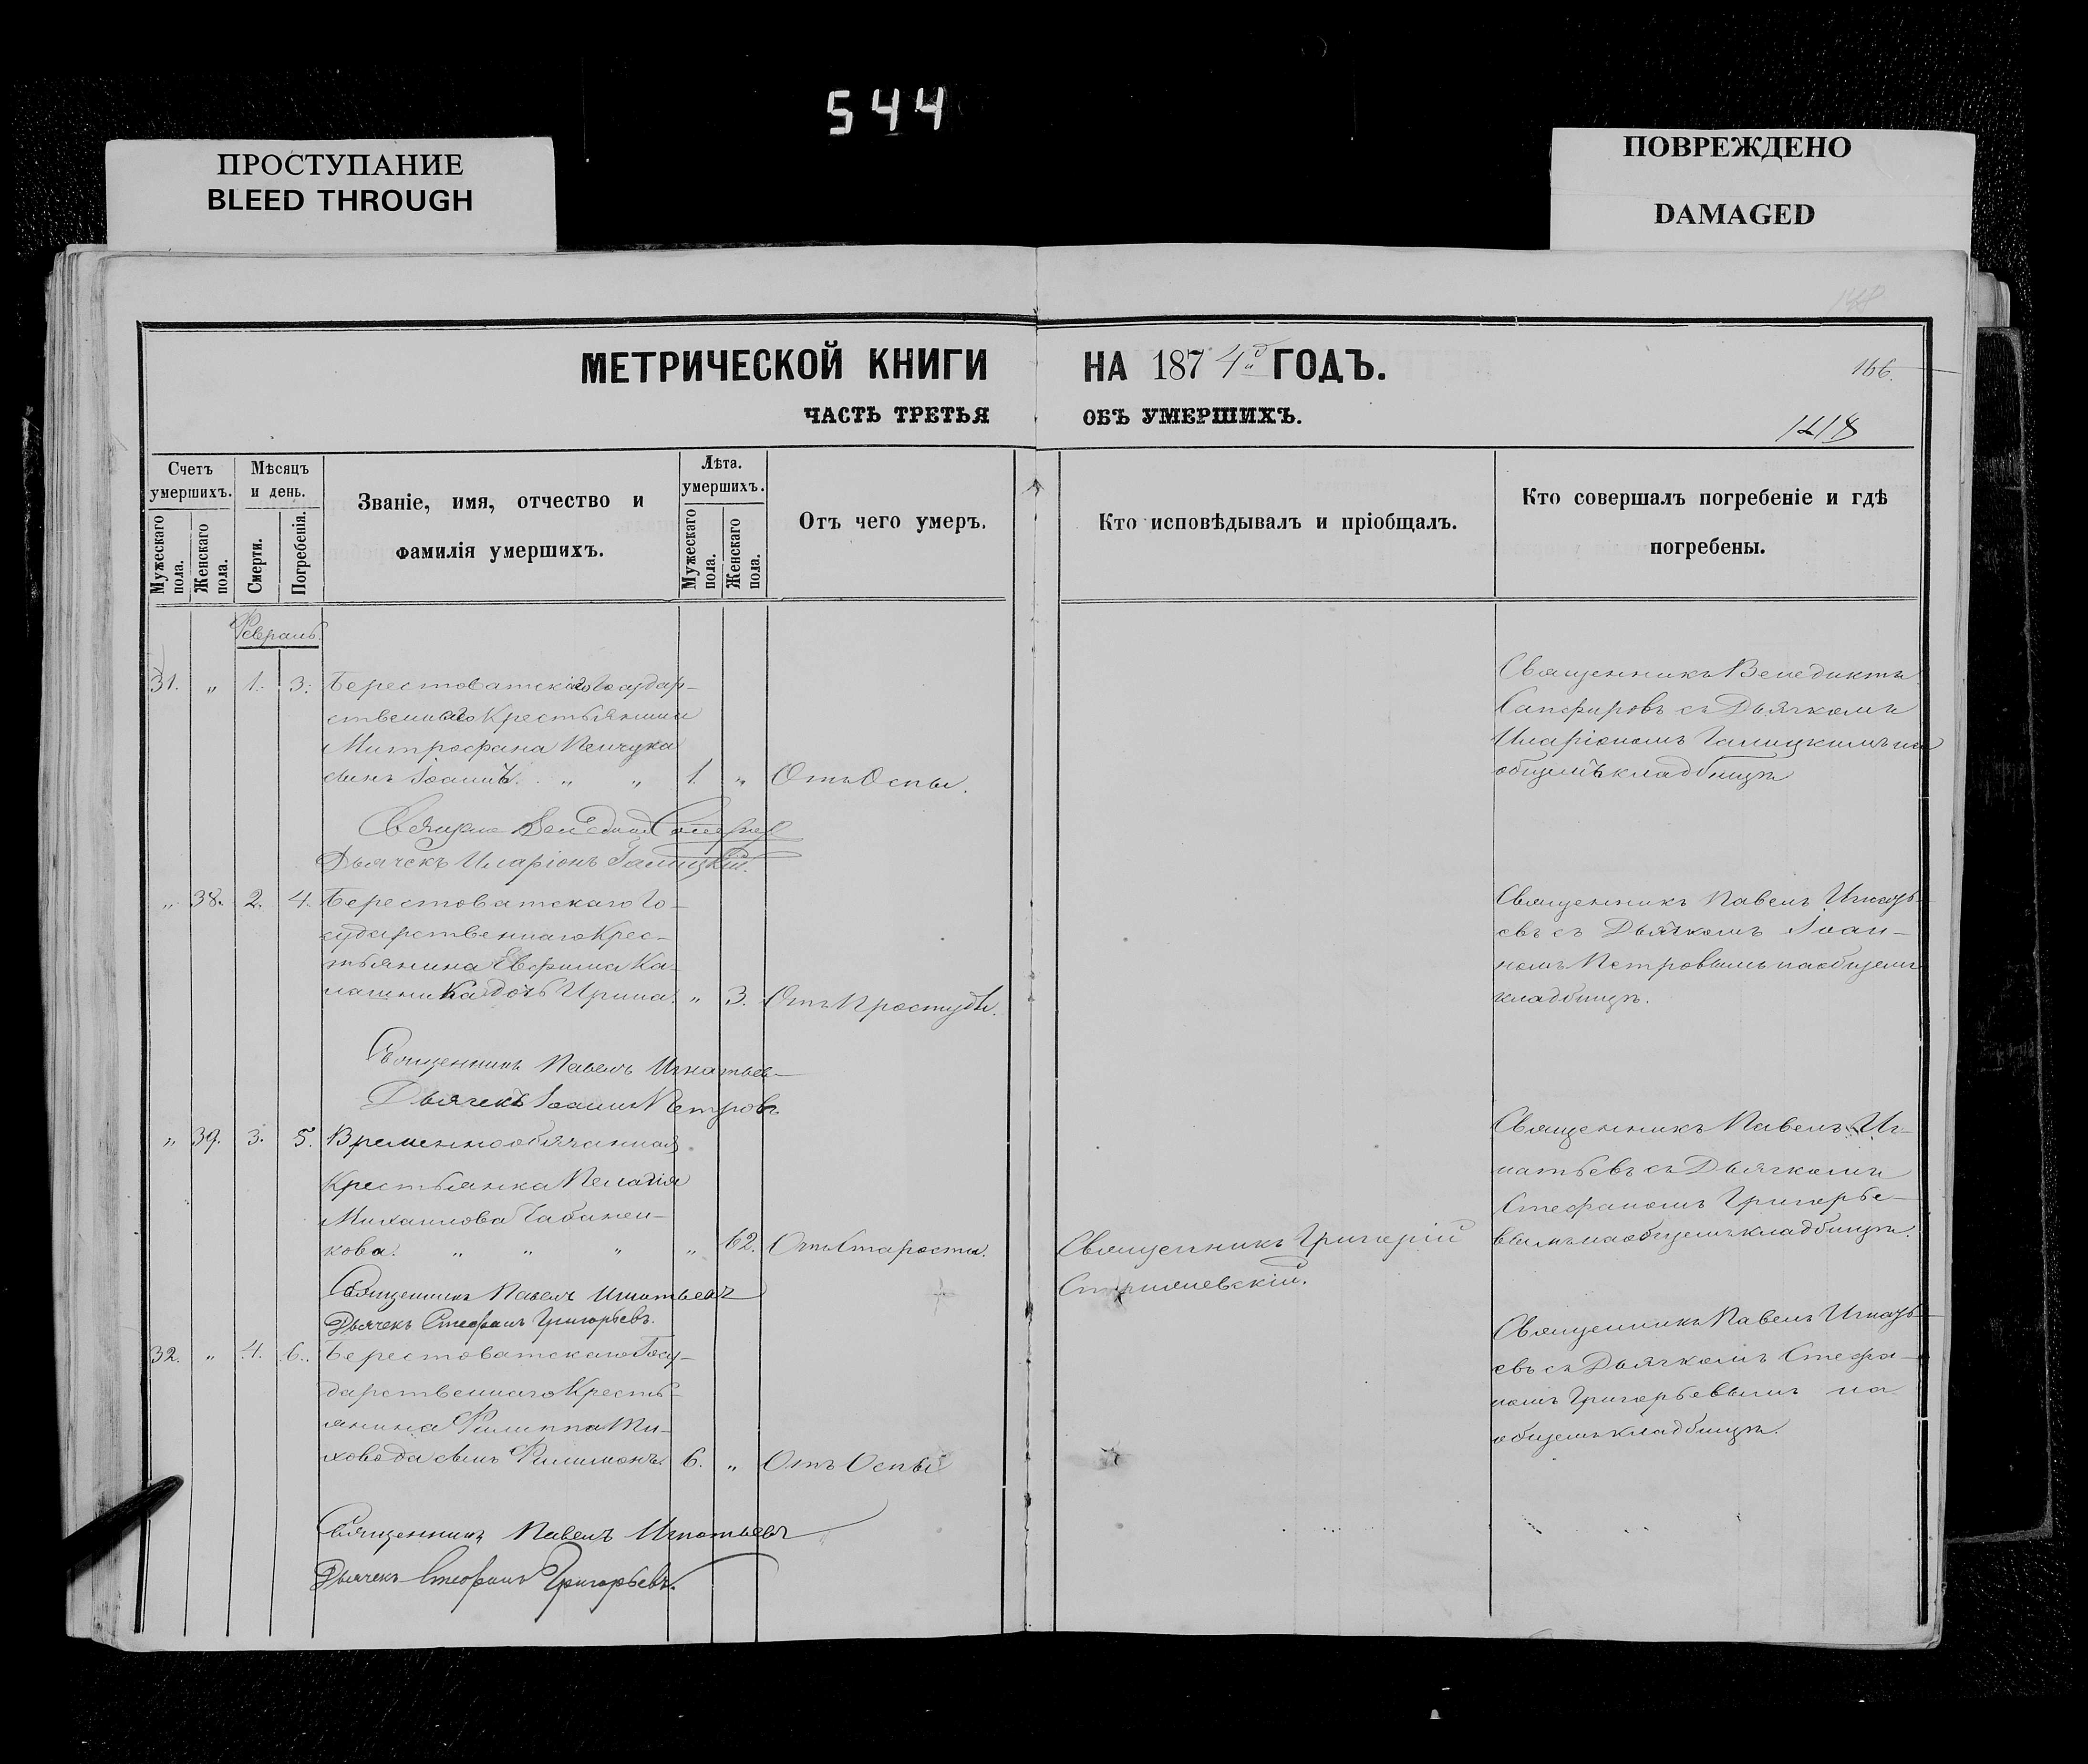 544
ПРОСТУПАНИЕ
BLEED THROUGH
ПОВРЕЖДЕНО
DAMAGED
МЕТРИЧЕСКОЙ КНИГИ НА 1874й ГОДЪ.
166.
ЧАСТЬ ТРЕТЬЯ ОБЪ УМЕРШИХЪ.
Счетъ умершихъ.
Мужескаго пола.
Женскаго пола.
Мѣсяцъ и день.
Смерти.
Погребенія.
Званіе, имя, отчество и
фамилія умершихъ.
Лѣта. умершихъ.
Мужескаго пола.
Женскаго пола.
Отъ чего умеръ.
Кто исповѣдывалъ и пріобщалъ.
Кто совершалъ погребеніе и гдѣ
погребены.
Февраль.
31. „ 1. 3. Берестоватскаго Государ-
ственнаго Крестьянина
Митрофана
сынъ Іоаннъ. „ „ 1. „ Отъ Оспы.
Священникъ Венедиктъ
Сапфировъ съ Дьячкомъ
Иларіономъ Галицкимъ на
общемъ кладбищѣ
Дьячекъ Иларіонъ Галицкій.
„ 38. 2. 4. Берестоватскаго Го-
сударственнаго Крес-
тьянина Евфима Ка-
лашника дочь Ирина. „ 3. Отъ Простуды.
Священникъ Павелъ Игнатъ-
евъ съ Дьячкомъ Іоан-
номъ Петровымъ на общемъ
кладбищѣ.
Священникъ Павелъ Игнатьев
Дьячекъ Іоаннъ Петровъ
„ 39. 3. 5. Временнообязанная
Крестьянка Пелагія
Михаилова Чабанен-
кова. „ „ „ „ 62. Отъ Старости.
Священникъ Григорій
Священникъ Павелъ Иг-
натьевъ съ Дьячкомъ
Стефаномъ Григорье-
вымъ на общемъ кладбищѣ.
Священникъ Павелъ Игнатьевъ
Дьячекъ Стефанъ Григорьевъ.
32. „ 4. 6. Берестоватскаго Госу-
дарственнаго Кресть-
янина Филиппа Ти-
ховода сынъ Филимонъ. 6. „ Отъ Оспы
Священникъ Павелъ Игнать-
евъ съ Дьячкомъ Стефа-
номъ Григорьевымъ на
общемъ кладбищѣ.
Священникъ Павелъ Игнатьевъ
Дьячекъ Стефанъ Григорьевъ.